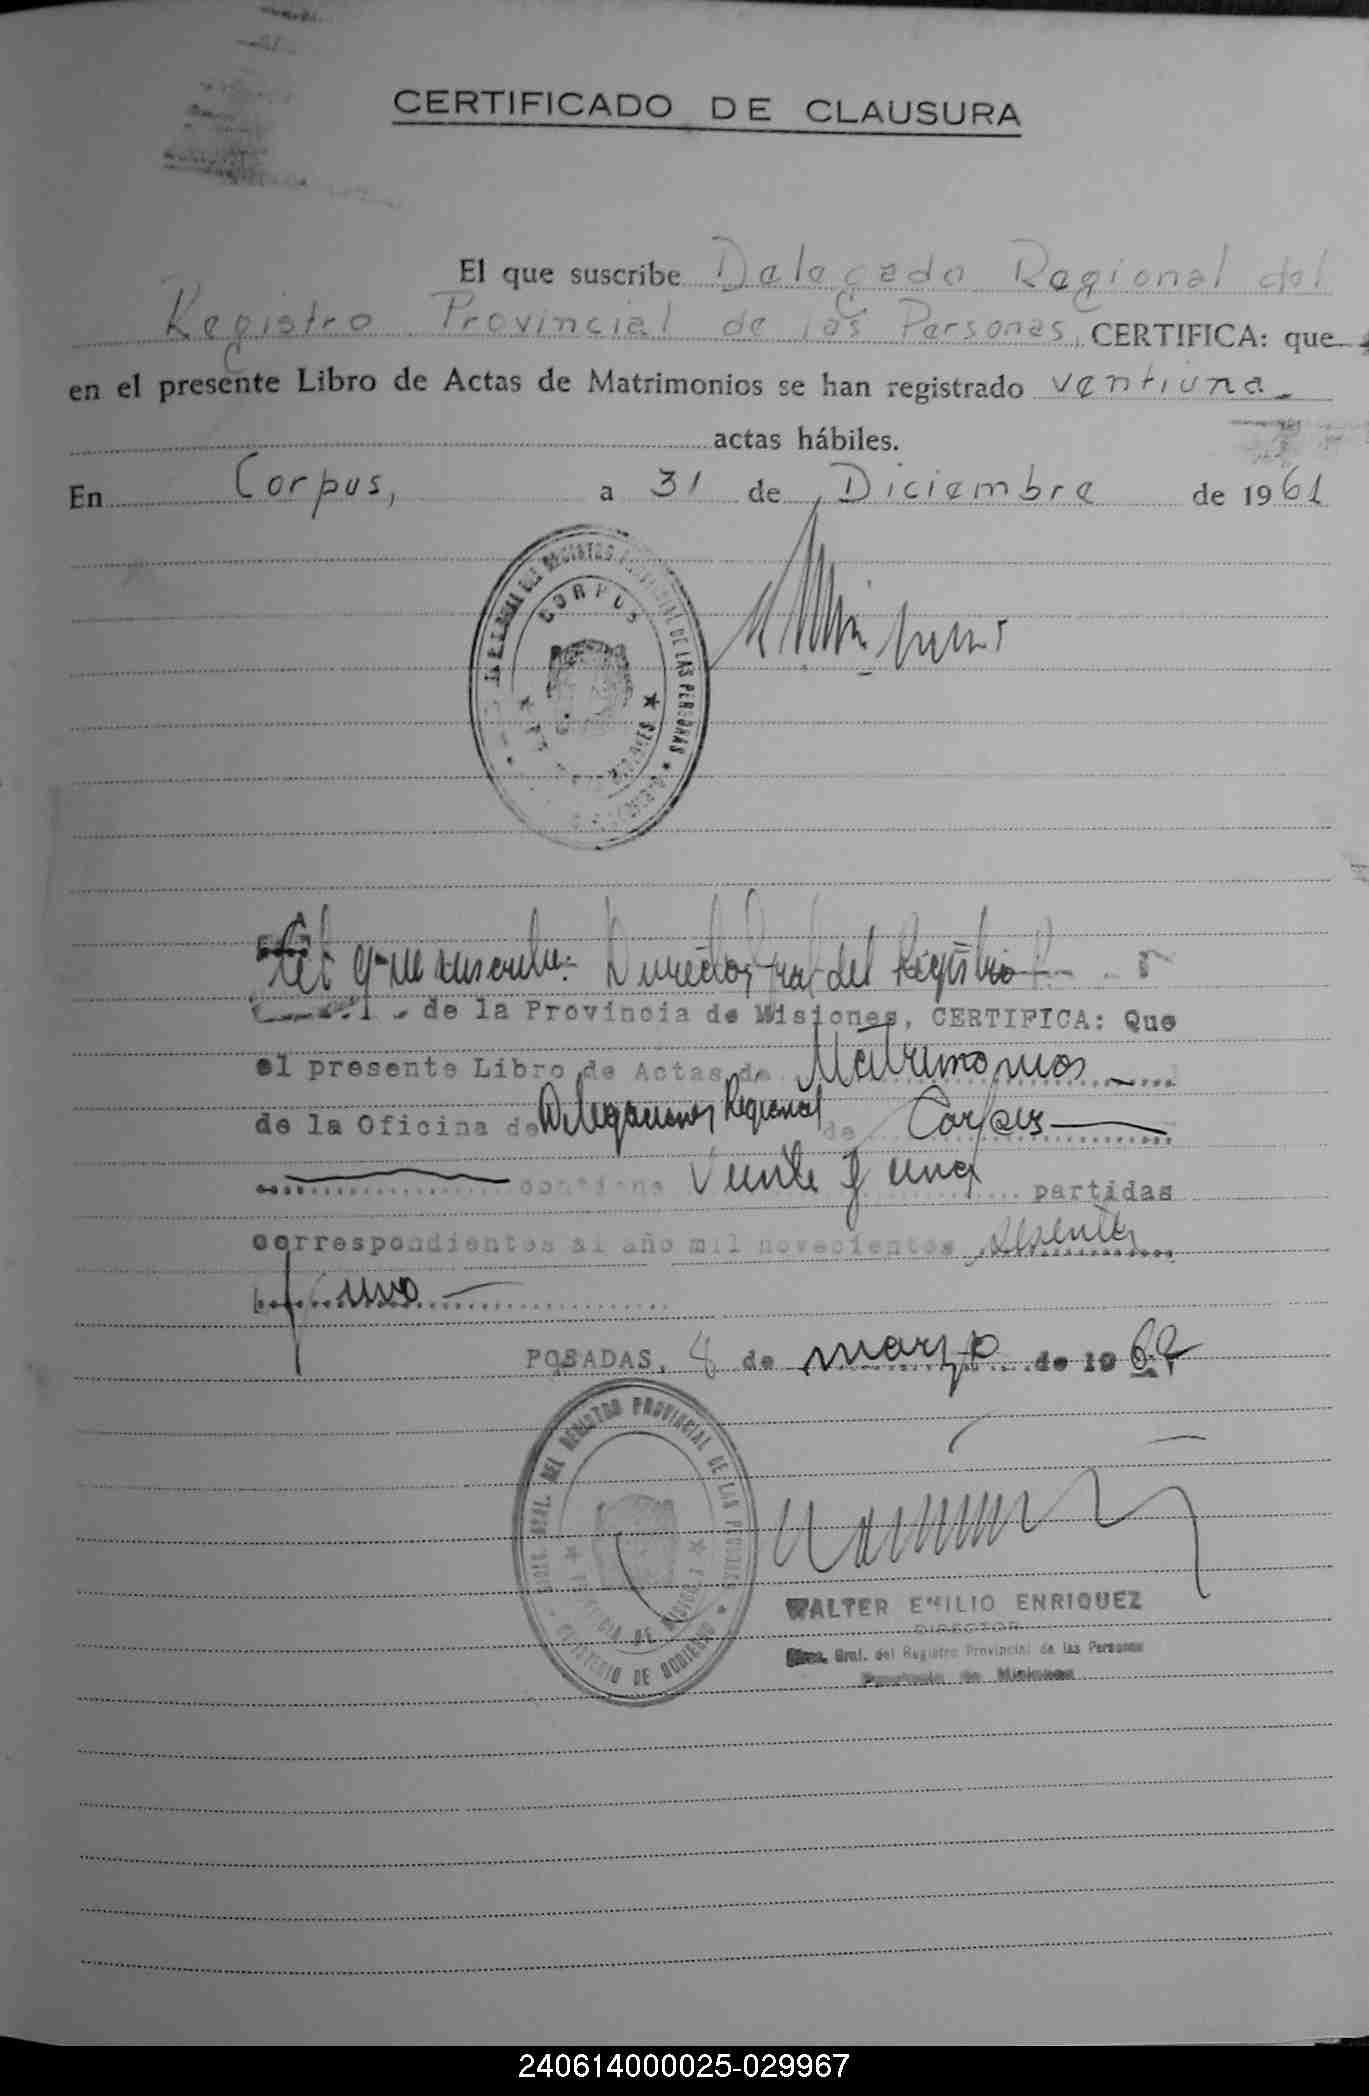 CERTIFICADO DE CLAUSURA
El que suscribe Delegado Regional del
Registro Provincial de las Personas, CERTIFICA: que
en el presente Libro de Actas de Matrimonios se han registrado ventiuna
actas hábiles.
En Corpus, a 31 de Diciembre de 1961
REGISTRO DE LAS PERSONAS
CORPUS
El que suscribe: Director Gral del Registro P.
de la Provincia de Misiones, CERTIFICA: Que
el presente Libro de Actas de Matrimonios
de la Oficina de Delegaciones Regional de Corpus
contiene Veinte y una partidas
correspondientes al año mil novecientos sesenta
y uno
POSADAS, 8 de marzo de 1962
DIREC. GRAL. DEL REGISTRO PROVINCIAL DE LAS PERSONAS
PROVINCIA DE MISIONES
MINISTERIO DE GOBIERNO
WALTER EMILIO ENRIQUEZ
DIRECTOR
Direc. Gral. del Registro Provincial de las Personas
Provincia de Misiones
240614000025-029967